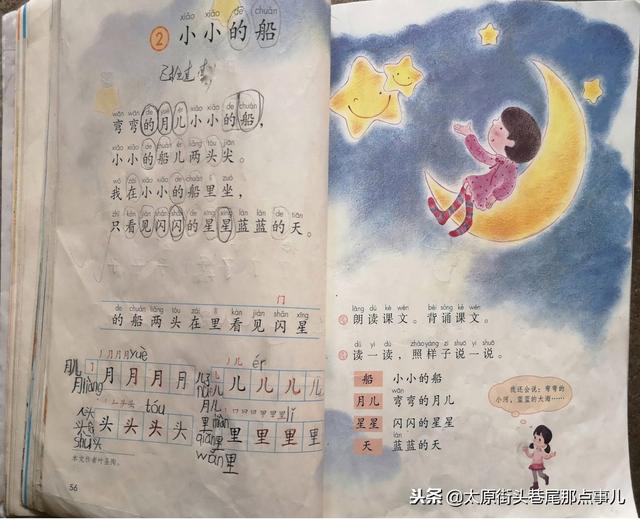 xiǎo xiǎo de chuán
2 小小的船
wān wān de yuè ér xiǎo xiǎo de chuán
弯弯的月儿小小的船,
xiǎo xiǎo de chuán ér liǎng tóu jiān
小小的船儿两头尖。
wǒ zài xiǎo xiǎo de chuán lǐ zuò
我在小小的船里坐,
zhǐ kàn jiàn shǎn shǎn de xīng xing lán lán de tiān
只看见闪闪的星星蓝蓝的天。
门
de chuán liǎng tóu zài lǐ kàn jiàn shǎn xīng
的船两头在里看见闪星
yuè
月儿
月liang
月月月月
ér
儿儿儿儿
月儿
tóu
头头头头
lǐ
里里里里
本文作者叶圣陶。
56
lǎng dú kè wén bèi sòng kè wén
朗读课文。背诵课文。
dú yi dú zhàoyàng zi shuō yi shuō
读一读,照样子说一说。
船 小小的船
月儿 弯弯的月儿
星星 闪闪的星星
lán
天 蓝蓝的天
我还会说:弯弯的
小河,蓝蓝的大海……
头条 @太原街头巷尾那点事儿